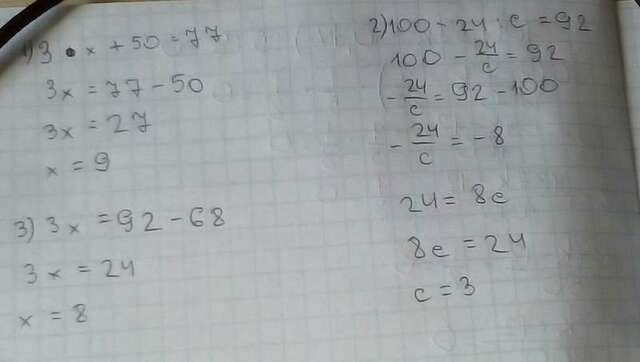 1) 3 • x + 50 = 77
3x = 77 - 50
3x = 27
x = 9
3) 3x = 92 - 68
3x = 24
x = 8
2) 100 - 24 : c = 92
100 - 24/c = 92
- 24/c = 92 - 100
- 24/c = - 8
24 = 8c
8c = 24
c = 3